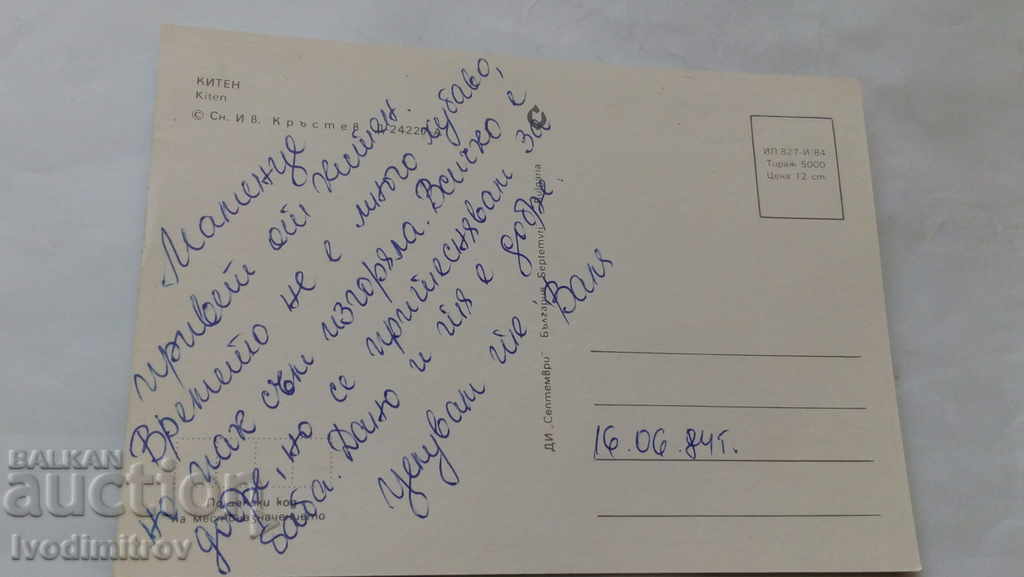 КИТЕН
Kiten
© Сн. И в. Кръстев Д-24220
Маменце
привет от Китен.
Времето не е много хубаво,
но пак съм изгоряла. Всичко е
добре, но се притеснявам за
баба. Дано и тя е добре.
Целувам те Валя
ДИ „Септември" България Septemvri Bulgaria
ИП 827-И'84
Тираж 5000
Цена 12 ст.
16.06.84г.
Пощенски код
на местоназначението
BALKAN
auction
Ivodimitrov